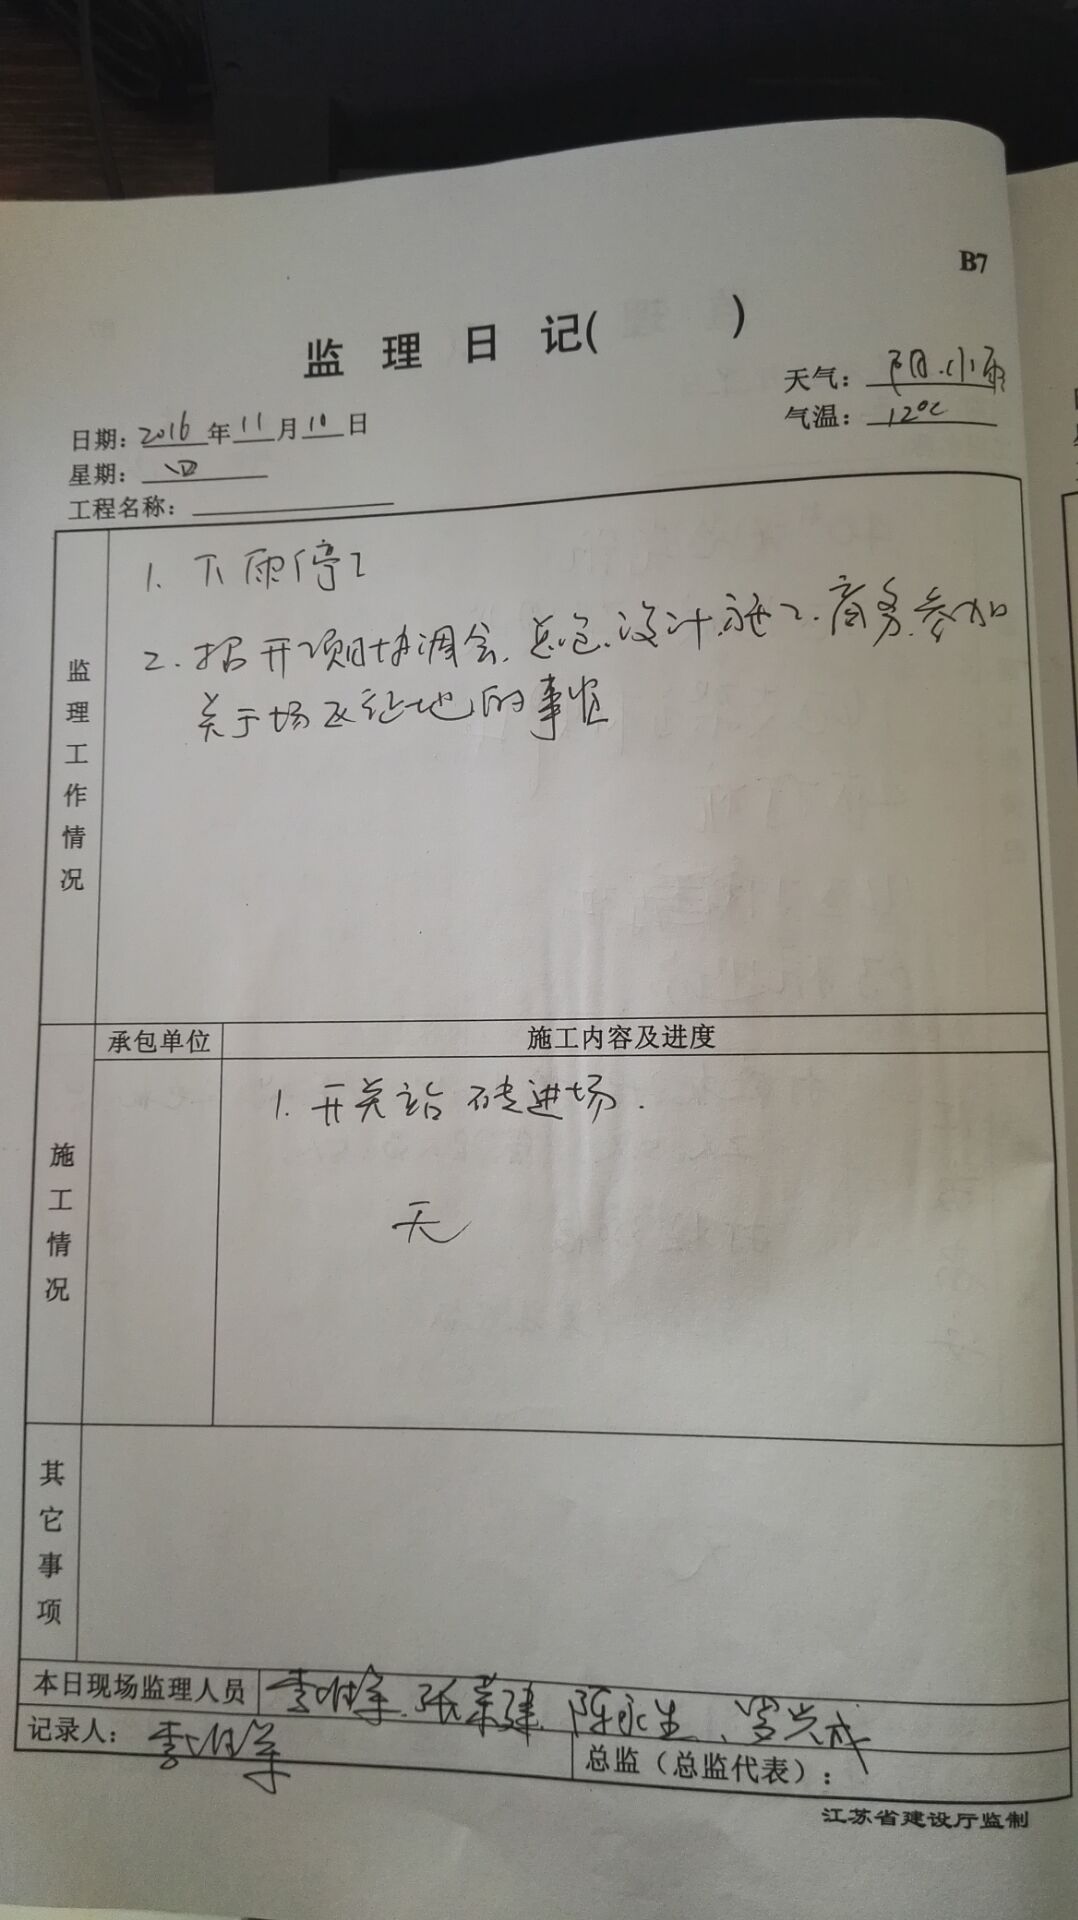 B7
监理日记(　　)
天气：阴.小雨
日期：2016年11月10日
气温：12℃
星期：四
工程名称：
监理工作情况
1. 下雨停工
2. 招开项目协调会.总包.设计.施工.商务.参加
关于场区征地的事宜
承包单位
施工内容及进度
施工情况
1. 开关站砖进场.
无
其它事项
本日现场监理人员 张荣建.陈永生、罗兴成
记录人：
总监（总监代表）：
江苏省建设厅监制